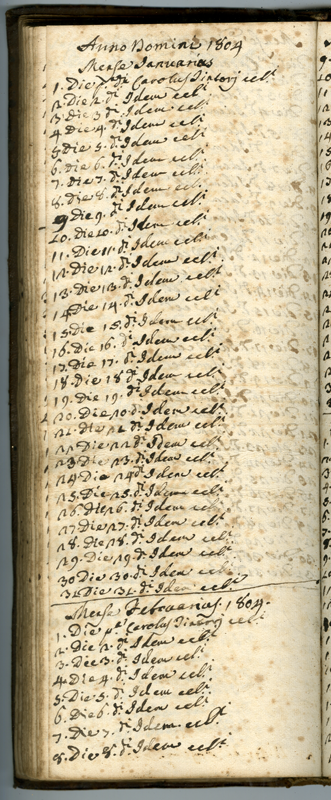 Anno Domini 1804
Mense Januarius
1. Die pa di Carolus celt
2. Die 2. di Idem celt
3. Die 3. di Idem celt
4. Die 4. di Idem celt
5. Die 5. di Idem celt
6. Die 6. di Idem celt
7. Die 7. di Idem celt
8. Die 8. di Idem celt
9. Die 9. di Idem celt
10. Die 10. di Idem celt
11. Die 11. di Idem celt
12. Die 12. di Idem celt
13. Die 13. di Idem celt
14 Die 14. di Idem celt
15 Die 15. di Idem celt
16. Die 16. di Idem celt
17. Die 17. di Idem celt
18. Die 18 di Idem celt
19. Die 19. di Idem celt
20. Die 20. di Idem celt
21. Die 21 di Idem celt
22 Die 22 di Idem celt
23 Die 23. di Idem celt
24 Die 24 di Idem celt
25. Die 25. di Idem celt
26. Die 26. di Idem celt
27 Die 27. di Idem celt
28. Die 28. di Idem celt
29. Die 29 di Idem celt
30 Die 30. di Idem celt
31. Die 31. di Idem celt
Mense Februarius 1804.
1. Die pa Carolus celt
2. Die 2. di Idem celt
3. Die 3. di Idem celt
4. Die 4. di Idem celt
5. Die 5. di Idem celt
6. Die 6. di Idem celt
7. Die 7. di Idem celt
8. Die 8. di Idem celt